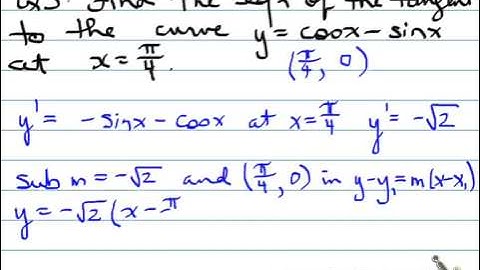 Find the eqn of the tangent
to the curve y = cosx - sinx
at x = π/4. (π/4, 0)
y' = -sinx - cosx at x = π/4 y' = -√2
sub m = -√2 and (π/4, 0) in y-y₁=m(x-x₁)
y = -√2 (x - π